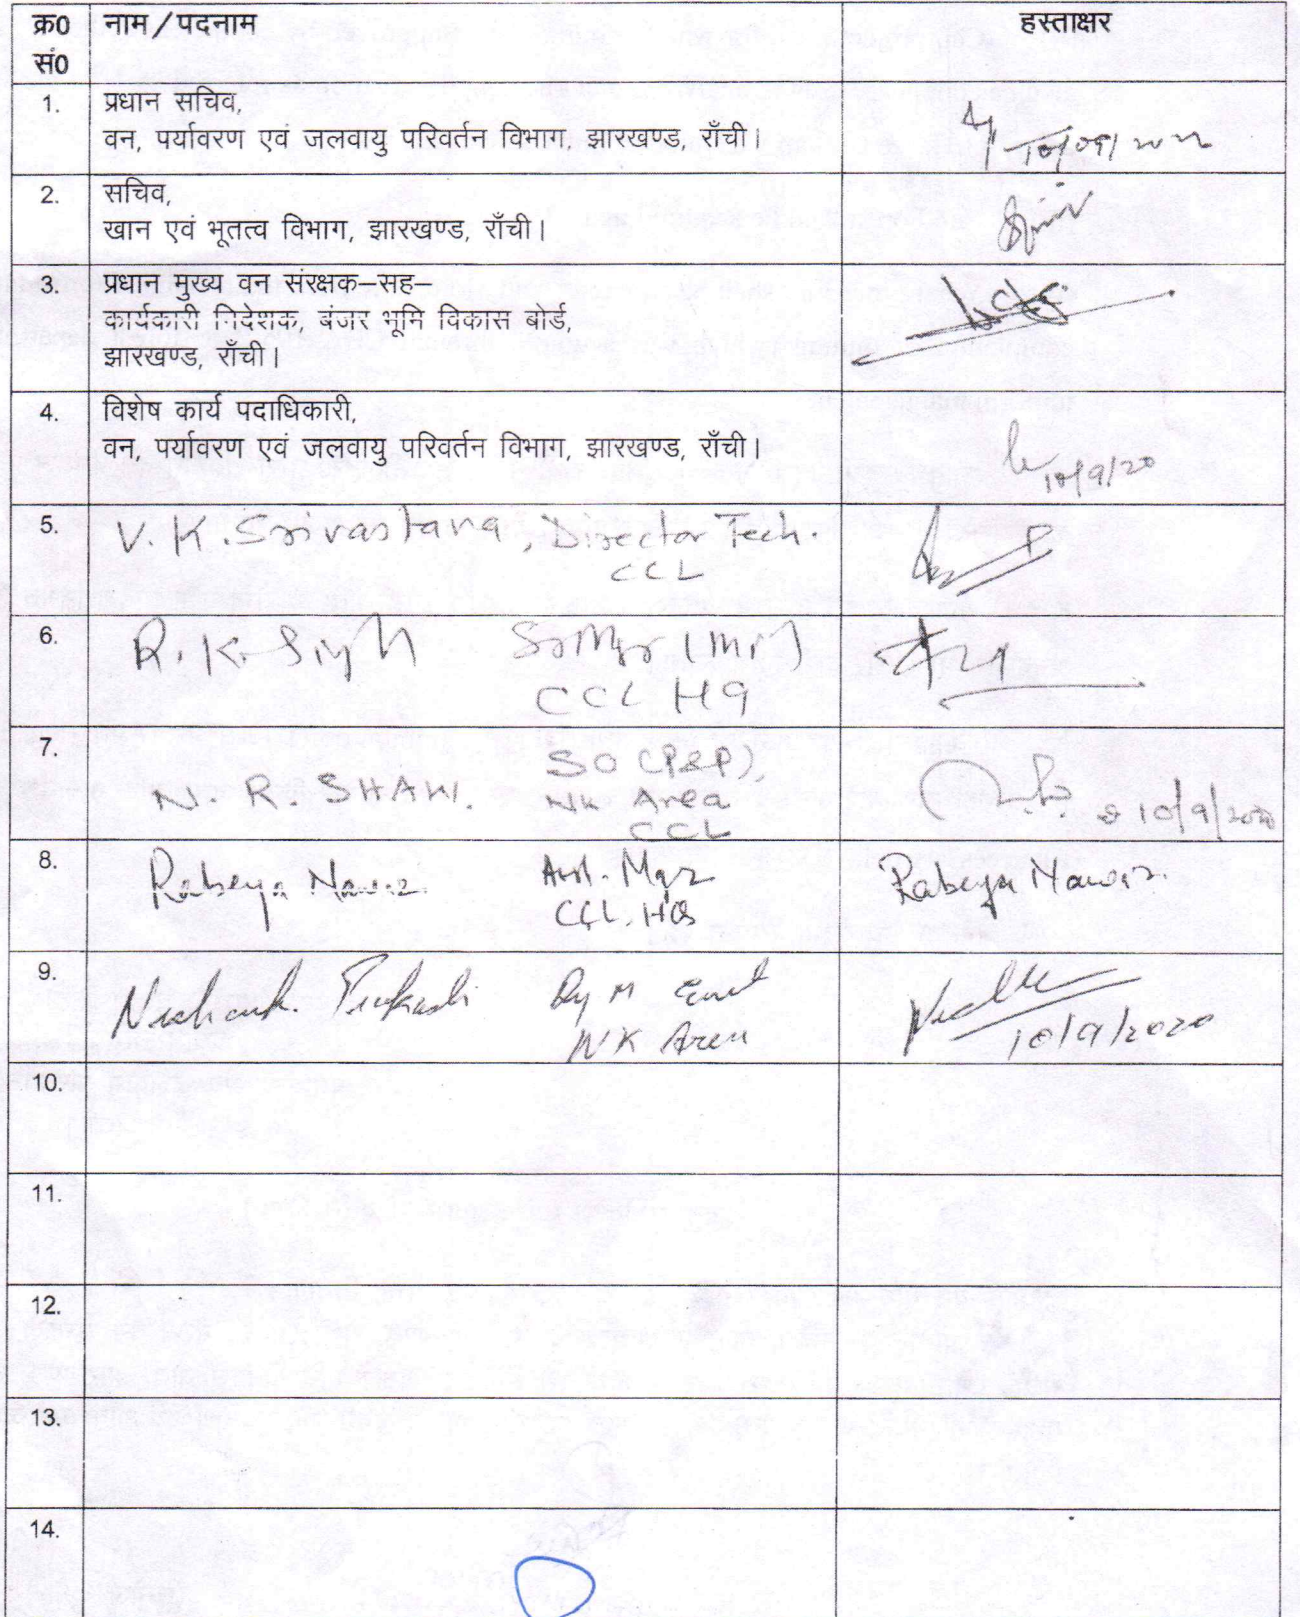 क्र0 सं0 नाम/पदनाम हस्ताक्षर
1. प्रधान सचिव,
वन, पर्यावरण एवं जलवायु परिवर्तन विभाग, झारखण्ड, राँची। 10/09/2020
2. सचिव,
खान एवं भूतत्व विभाग, झारखण्ड, राँची।
3. प्रधान मुख्य वन संरक्षक–सह–
कार्यकारी निदेशक, बंजर भूमि विकास बोर्ड,
झारखण्ड, राँची।
4. विशेष कार्य पदाधिकारी,
वन, पर्यावरण एवं जलवायु परिवर्तन विभाग, झारखण्ड, राँची। 10/9/20
5. V. K. Srivastava, Director Tech.
CCL
6. R. K. Singh
CCL HQ
7. SO (P&P),
N. R. SHAHI. NK Area
CCL 10/9/2020
8. Rabeya Nawaz. Asst. Mgr Rabeya Nawaz.
CCL, HQ
9. Nishank Prakash Dy M Envt
NK Area 10/9/2020
10.
11.
12.
13.
14.